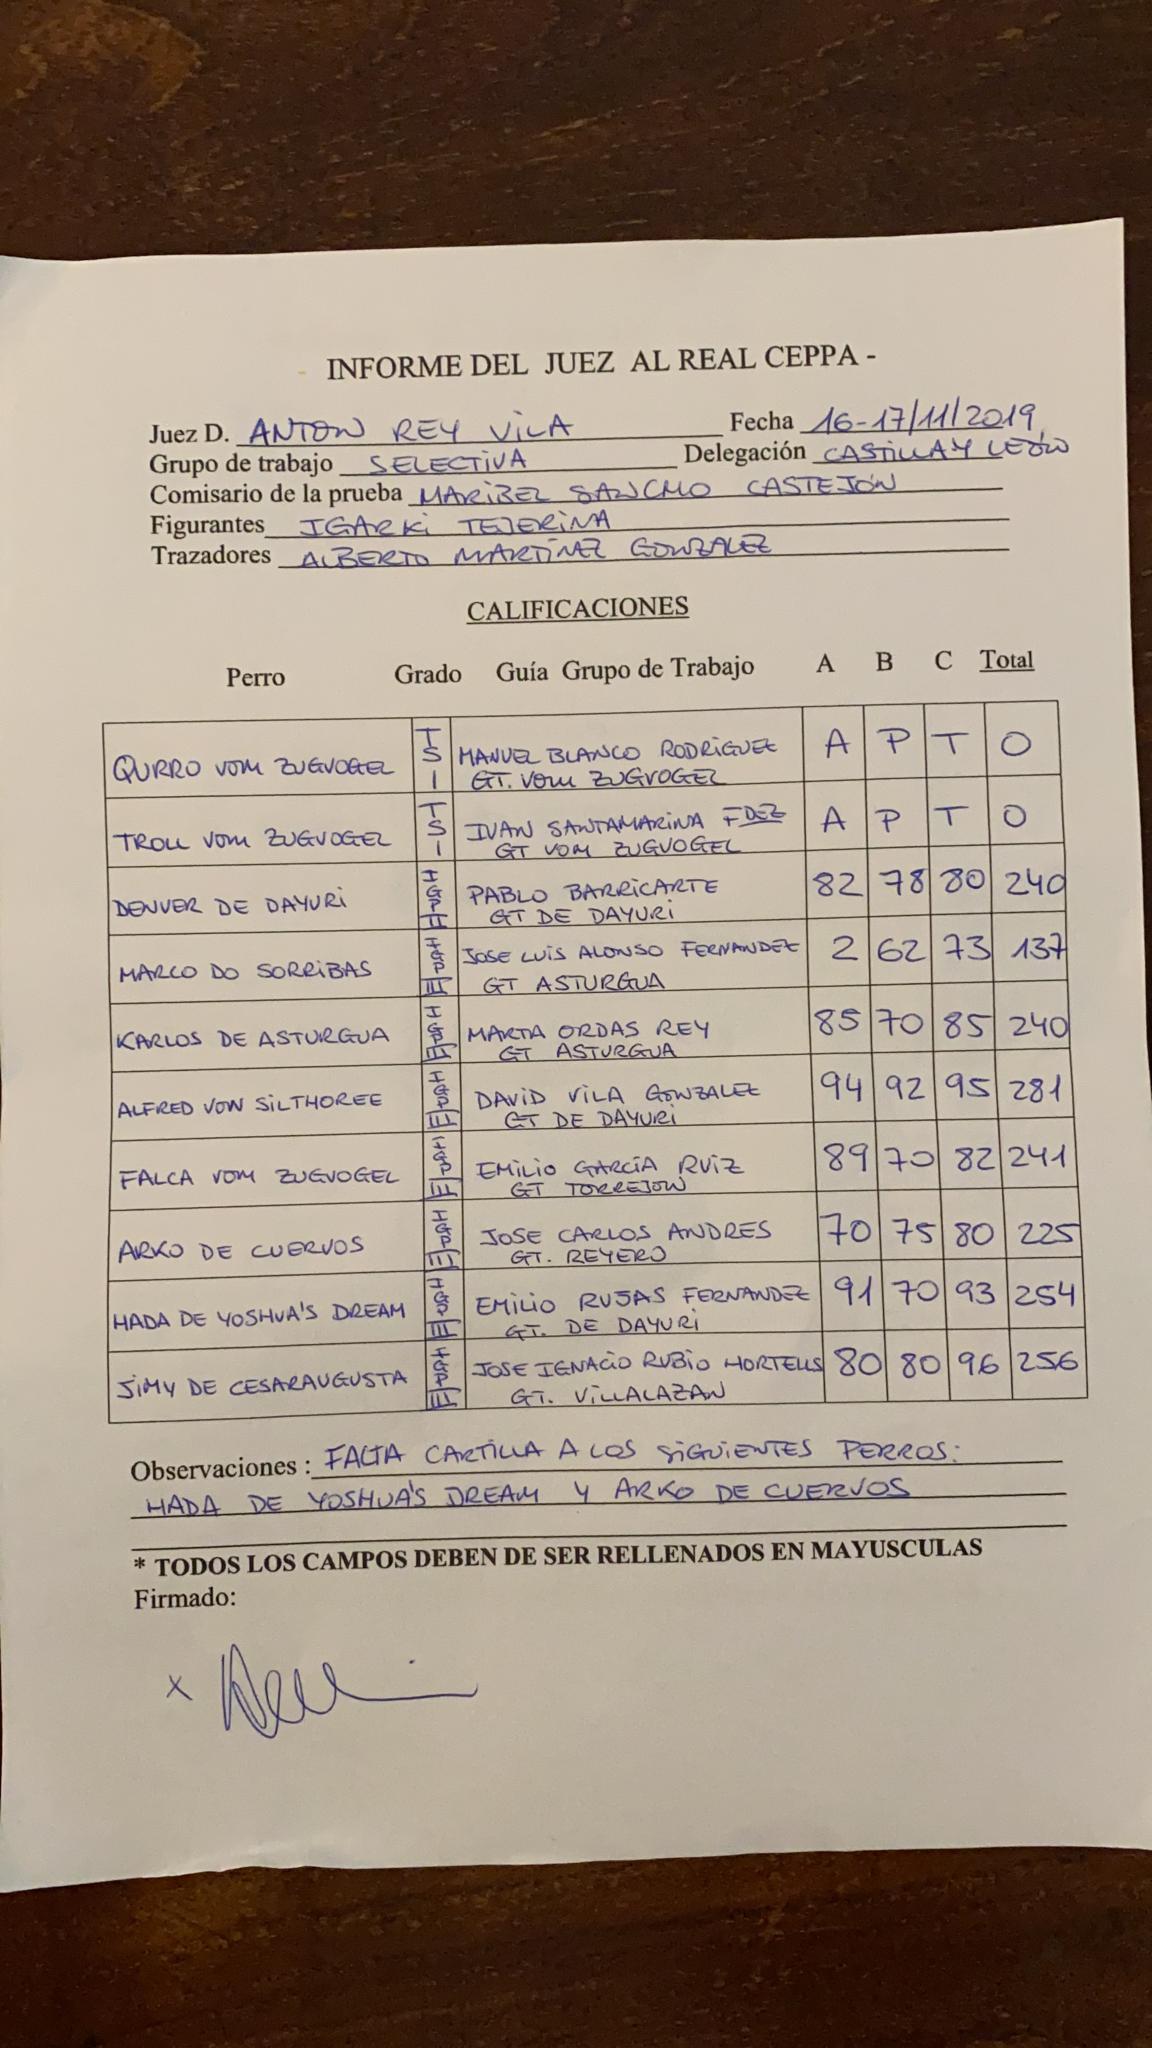 - INFORME DEL JUEZ AL REAL CEPPA -
Juez D. ANTON REY VILA Fecha 16-17/11/2019
Grupo de trabajo SELECTIVA Delegación CASTILLA Y LEÓN
Comisario de la prueba MARIBEL SANCHO CASTEJÓN
Figurantes IGARKI TEJERINA
Trazadores ALBERTO MARTÍNEZ GONZALEZ
CALIFICACIONES
Perro Grado Guía Grupo de Trabajo A B C Total
QURRO VOM ZUGVOGEL TSI MANUEL BLANCO RODRÍGUEZ A P T O
GT. VOM ZUGVOGEL
TROLL VOM ZUGVOGEL TSI IVAN SANTAMARINA FDEZ A P T O
GT VOM ZUGVOGEL
DENVER DE DAYURI IGP II PABLO BARRICARTE 82 78 80 240
GT DE DAYURI
MARCO DO SORRIBAS IGP III JOSE LUIS ALONSO FERNANDEZ 2 62 73 137
GT ASTURGUA
KARLOS DE ASTURGUA IGP III MARTA ORDAS REY 85 70 85 240
GT ASTURGUA
ALFRED VON SILTHOREE IGP III DAVID VILA GONZALEZ 94 92 95 281
GT DE DAYURI
FALCA VOM ZUGVOGEL IGP III EMILIO GARCÍA RUIZ 89 70 82 241
GT TORREJON
ARKO DE CUERVOS IGP III JOSE CARLOS ANDRES 70 75 80 225
GT. REYERO
HADA DE YOSHUA'S DREAM IGP III EMILIO RUJAS FERNANDEZ 91 70 93 254
GT. DE DAYURI
JIMY DE CESARAUGUSTA IGP III JOSE IGNACIO RUBIO HORTELLS 80 80 96 256
GT. VILLALAZAN
Observaciones : FALTA CARTILLA A LOS SIGUIENTES PERROS:
HADA DE YOSHUA'S DREAM Y ARKO DE CUERVOS
* TODOS LOS CAMPOS DEBEN DE SER RELLENADOS EN MAYUSCULAS
Firmado:
x